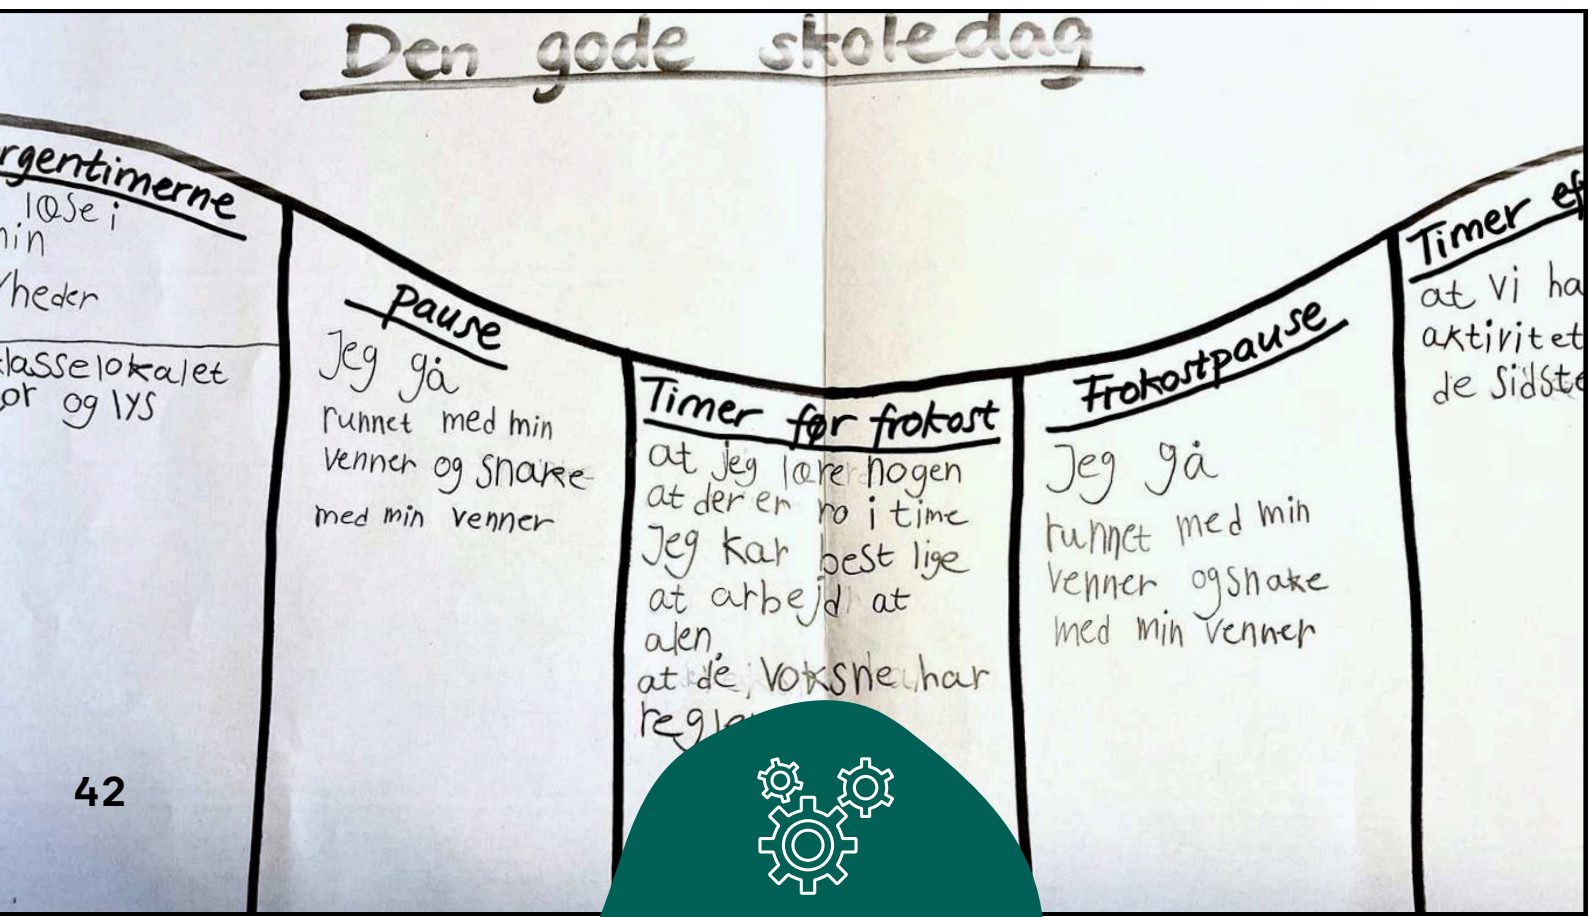 Den gode skoledag
rgentimerne
læse i
min
heder
klasselokalet
og lys
Pause
Jeg gå
runnet med min
venner og snake
med min venner
Timer før frokost
at jeg lære nogen
at der er ro i time
Jeg kar best lige
at arbejd at
alen.
at de voksne har
regler
Frokostpause
Jeg gå
runnet med min
venner og snake
med min venner
Timer ef
at vi ha
aktivitet
de sidste
42